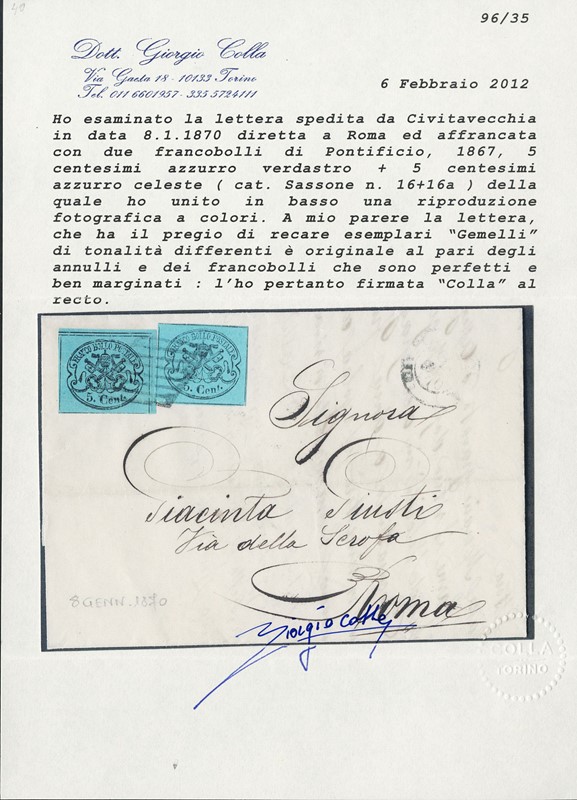 49
96/35
Dott. Giorgio Colla
Via Gaeta 18 - 10133 Torino
Tel. 011 6601957 - 335 5724111
6 Febbraio 2012
Ho esaminato la lettera spedita da Civitavecchia
in data 8.1.1870 diretta a Roma ed affrancata
con due francobolli di Pontificio, 1867, 5
centesimi azzurro verdastro + 5 centesimi
azzurro celeste ( cat. Sassone n. 16+16a ) della
quale ho unito in basso una riproduzione
fotografica a colori. A mio parere la lettera,
che ha il pregio di recare esemplari "Gemelli"
di tonalità differenti è originale al pari degli
annulli e dei francobolli che sono perfetti e
ben marginati : l'ho pertanto firmata "Colla" al
recto.
FRANCO BOLLO POSTALE
5. Cent.
FRANCO BOLLO POSTALE
5. Cent.
Signora
Giacinta Giusti
Via della Scrofa
Roma
8 GENN. 1870
Giorgio Colla
COLLA
TORINO